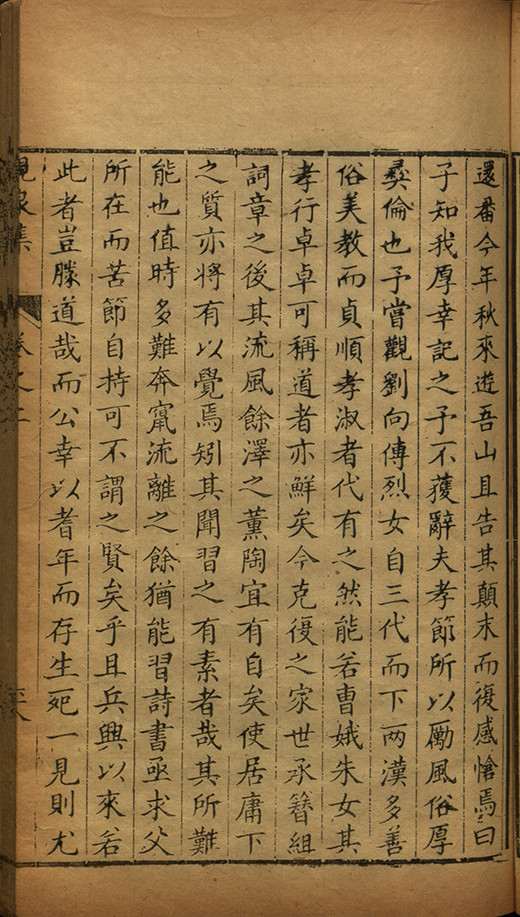 還番今年秋來遊吾山且告其顛末而復感愴焉曰
子知我厚幸記之予不獲辭夫孝節所以勵風俗厚
彜倫也予嘗觀劉向傳烈女自三代而下两漢多善
俗美教而貞順孝淑者代有之然能若曹娥朱女其
孝行卓卓可稱道者亦鮮矣今克復之家世承簪組
詞章之後其流風餘澤之薰陶宜有自矣使居庸下
之質亦將有以覺焉矧其聞習之有素者哉其所難
能也值時多難奔竄流離之餘猶能習詩書亟求父
所在而苦節自持可不謂之賢矣乎且兵興以來若
此者豈勝道哉而公幸以耆年而存生死一見則尤
峴泉集 卷之二